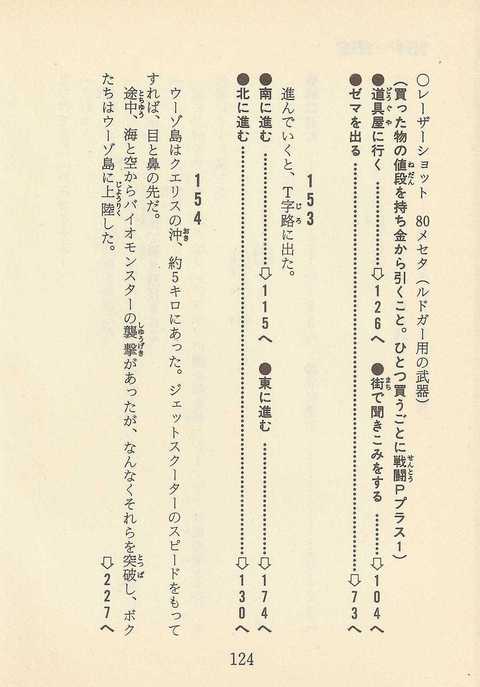 ○レーザーショット　80メセタ（ルドガー用の武器）
（買った物の値段を持ち金から引くこと。ひとつ買うごとに戦闘Pプラス1）
●道具屋に行く……⇨126へ　●街で聞きこみをする……⇨104へ
●ゼマを出る……⇨73へ
153
進んでいくと、T字路に出た。
●南に進む……⇨115へ　●東に進む……⇨174へ
●北に進む……⇨130へ
154
ウーゾ島はクエリスの沖、約5キロにあった。ジェットスクーターのスピードをもって
すれば、目と鼻の先だ。
途中、海と空からバイオモンスターの襲撃があったが、なんなくそれらを突破し、ボク
たちはウーゾ島に上陸した。……⇨227へ
124